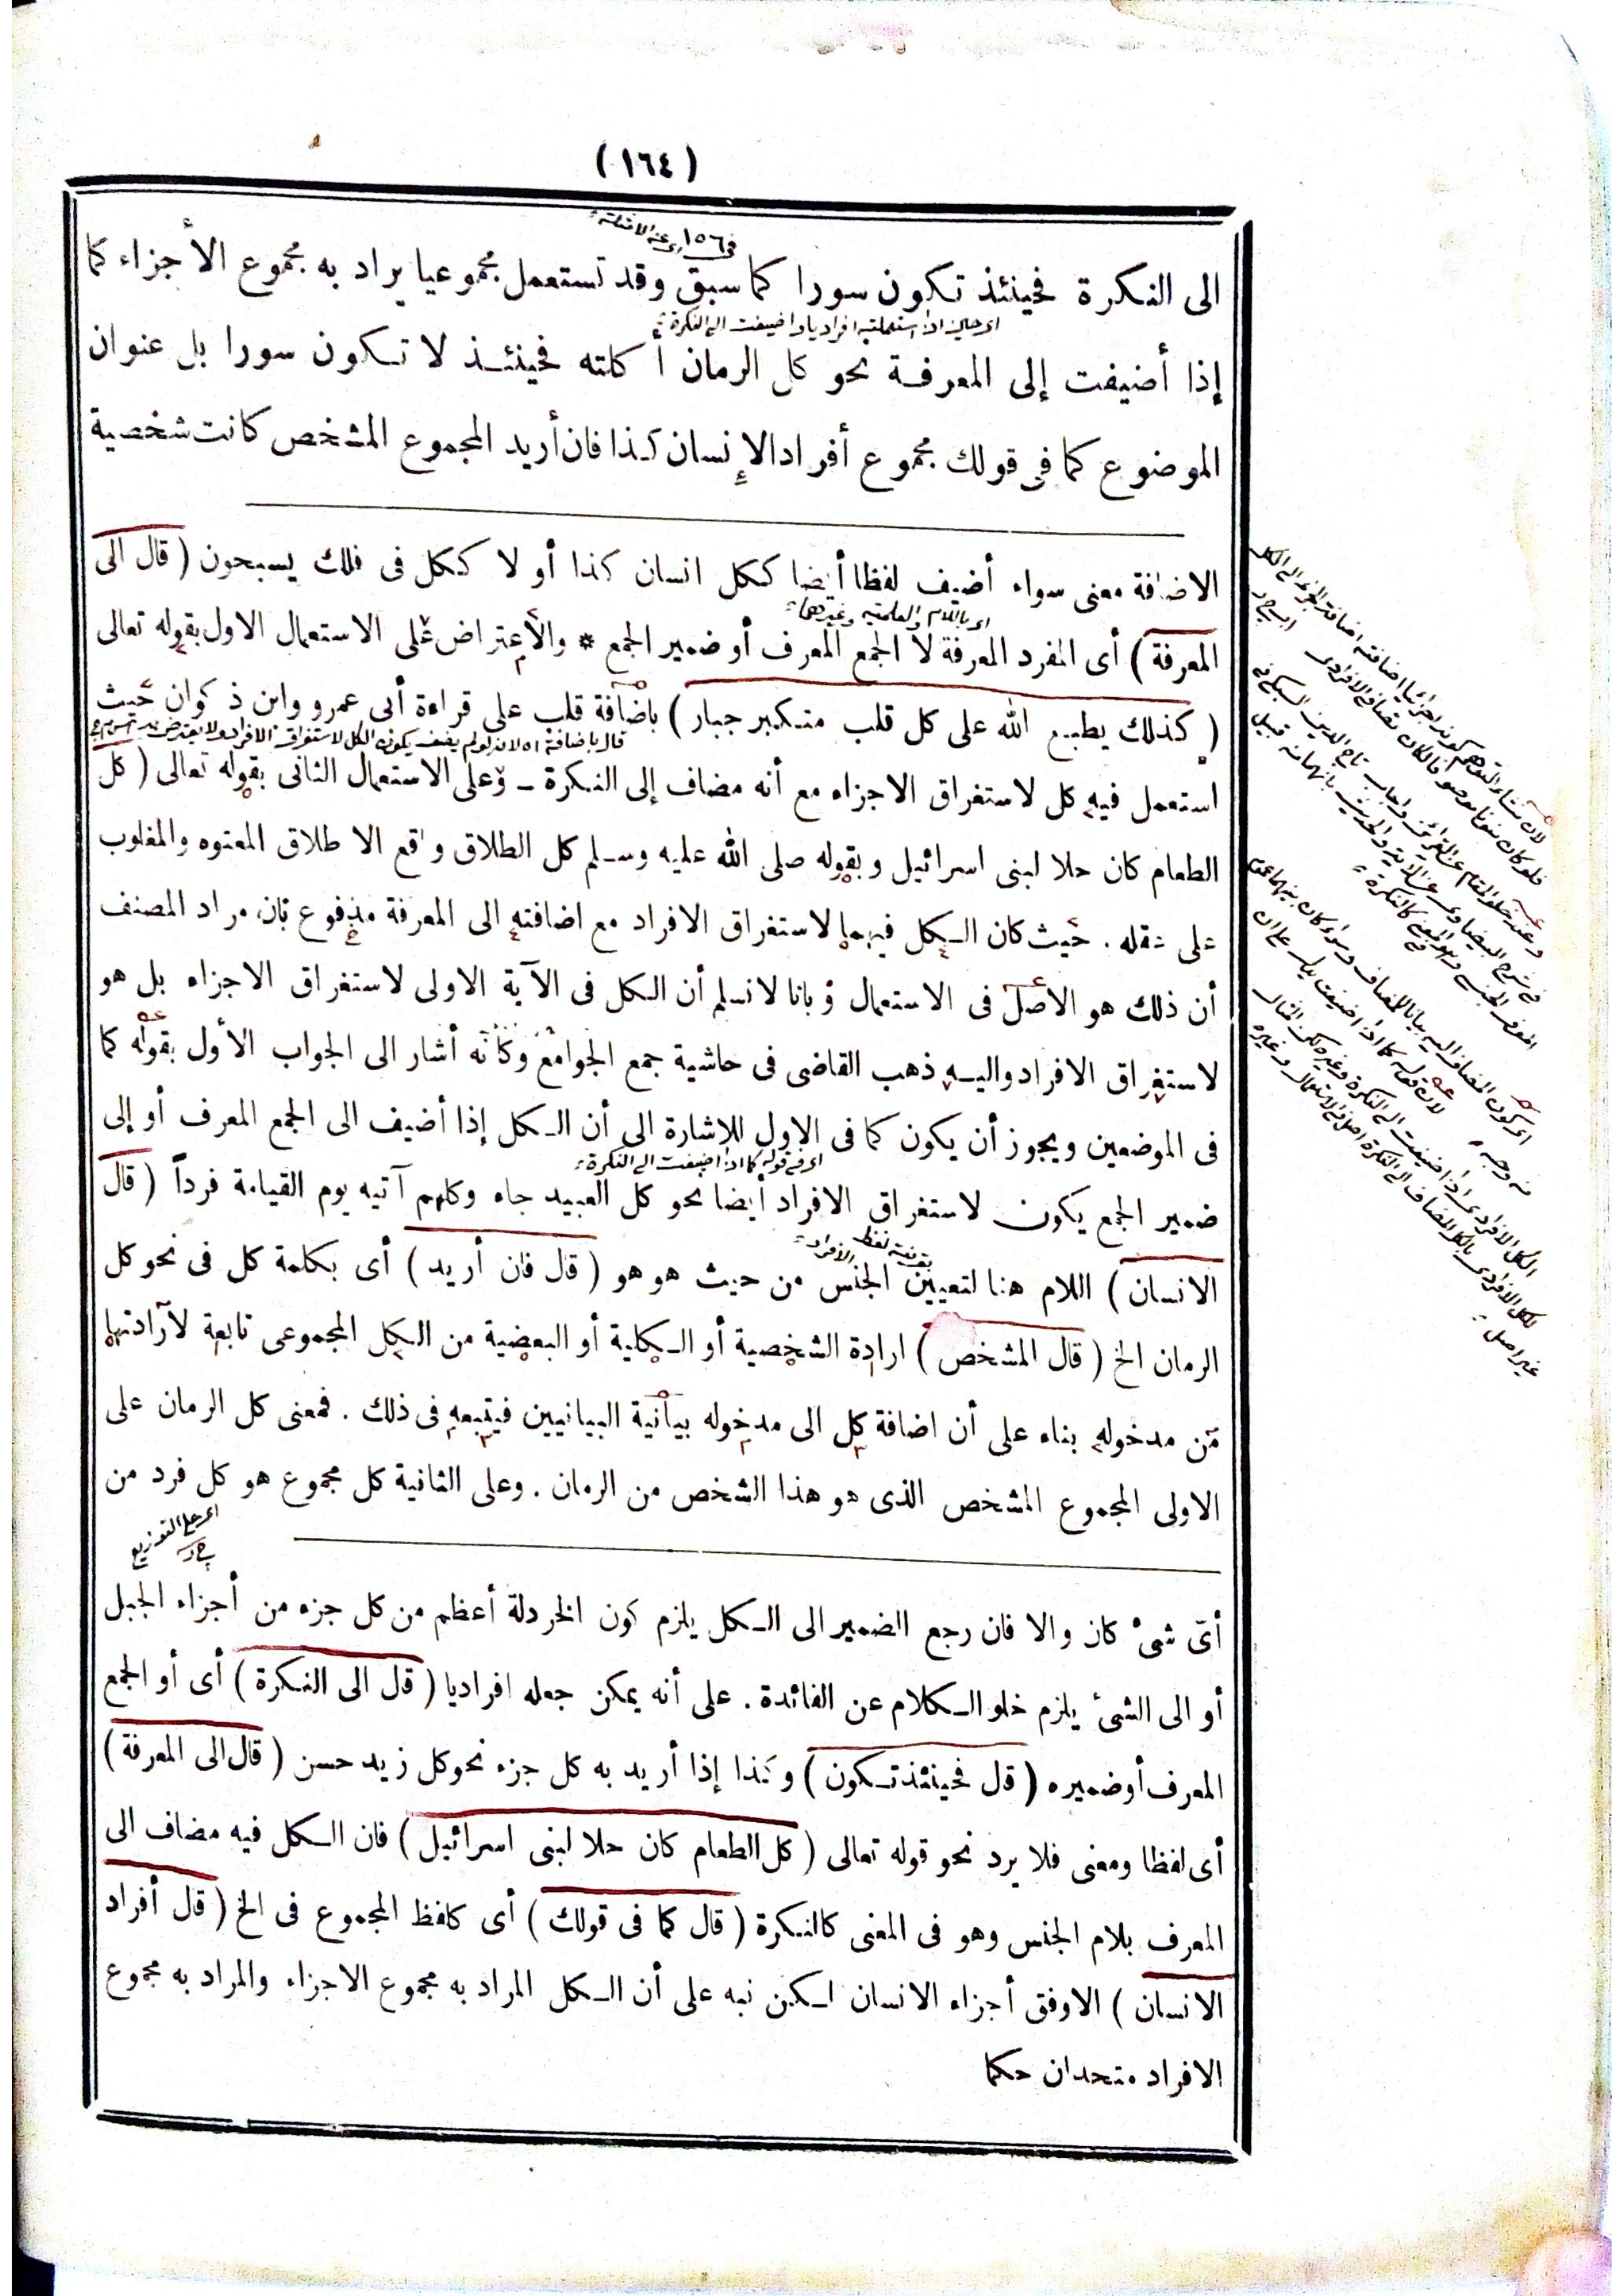 (١٦٤)
الى النكرة فحينئذ تكون سورا كما سبق وقد تستعمل مجموعيا يراد به مجموع الأجزاء كما
إذا أضيفت إلى المعرفة نحو كل الرمان أكلته فحينئذ لا تكون سورا بل عنوان
الموضوع كما فى قولك مجموع أفراد الإنسان كذا فان أريد المجموع المشخص كانت شخصية
الاضافة معنى سواء أضيف لفظا أيضا ككل انسان كذا أو لا ككل فى فلك يسبحون (قال الى
المعرفة) أى المفرد المعرفة لا الجمع المعرف أو ضمير الجمع * والاعتراض على الاستعمال الاول بقوله تعالى
(كذلك يطبع الله على كل قلب متكبر جبار) باضافة قلب على قراءة أبى عمرو وابن ذكوان حيث
استعمل فيه كل لاستغراق الاجزاء مع أنه مضاف إلى النكرة ــ وعلى الاستعمال الثانى بقوله تعالى (كل
الطعام كان حلا لبنى اسرائيل وبقوله صلى الله عليه وسلم كل الطلاق واقع الا طلاق المعتوه والمغلوب
على عقله . حيث كان الكل فيهما لاستغراق الافراد مع اضافته الى المعرفة مدفوع بان مراد المصنف
أن ذلك هو الاصل فى الاستعمال وبانا لا نسلم أن الكل فى الآية الاولى لاستغراق الاجزاء بل هو
لاستغراق الافراد واليه ذهب القاضى فى حاشية جمع الجوامع وكأنه أشار الى الجواب الأول بقوله كما
فى الموضعين ويجوز أن يكون كما فى الاول للاشارة الى أن الكل إذا أضيف الى الجمع المعرف أو إلى
اى فى قوله كما اذا اضيفت الى النكرة
ضمير الجمع يكون لاستغراق الافراد أيضا نحو كل العبيد جاء وكلهم آتيه يوم القيامة فرداً (قال
الانسان) اللام هنا لتعيين الجنس من حيث هو هو (قال فان أريد) أى بكلمة كل فى نحو كل
الرمان الخ (قال المشخص) ارادة الشخصية أو الكلية أو البعضية من الكل المجموعى تابعة لارادتها
من مدخوله بناء على أن اضافة كل الى مدخوله بيانية البيانيين فيتبعه فى ذلك . فمعنى كل الرمان على
الاولى المجموع المشخص الذى هو هذا الشخص من الرمان . وعلى الثانية كل مجموع هو كل فرد من
اى على التوزيع
أىّ شىء كان والا فان رجع الضمير الى الكل يلزم كون الخردلة أعظم من كل جزء من أجزاء الجبل
أو الى الشىء يلزم خلو الكلام عن الفائدة . على أنه يمكن جعله افراديا (قال الى النكرة) أى أو الجمع
المعرف أو ضميره (قال فحينئذ تكون) وكذا إذا أريد به كل جزء نحو كل زيد حسن (قال الى المعرفة)
أى لفظا ومعنى فلا يرد نحو قوله تعالى (كل الطعام كان حلا لبنى اسرائيل) فان الكل فيه مضاف الى
المعرف بلام الجنس وهو فى المعنى كالنكرة (قال كما فى قولك) أى كلفظ المجموع فى الخ (قال أفراد
الانسان) الاوفق أجزاء الانسان لكن نبه على أن الكل المراد به مجموع الاجزاء والمراد به مجموع
الافراد متحدان حكما